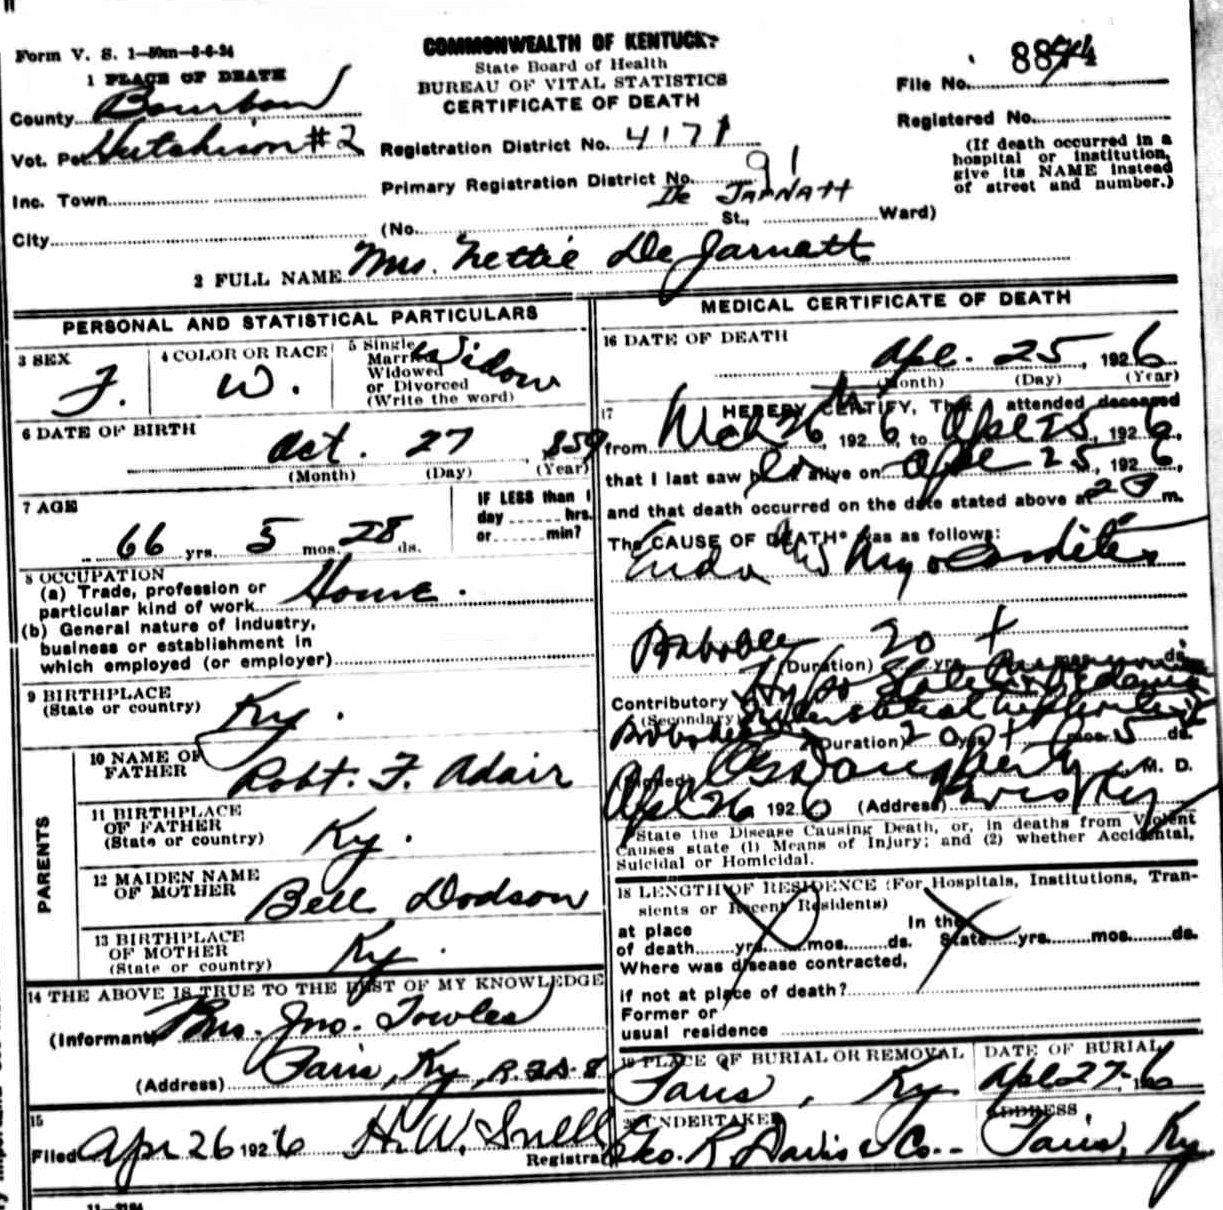 Form V. S. 1—50m—8-6-24
COMMONWEALTH OF KENTUCKY
State Board of Health
BUREAU OF VITAL STATISTICS
CERTIFICATE OF DEATH
File No.
Registered No.
(If death occurred in a hospital or institution, give its NAME instead of street and number.)
1 PLACE OF DEATH
County Bourbon
Vot. Pct. Hutchison #2
Inc. Town
City
Registration District No. 4171
Primary Registration District No. 91
De JARNATT
(No. St., Ward)
2 FULL NAME Mrs. Nettie De Jarnatt
PERSONAL AND STATISTICAL PARTICULARS
3 SEX F.
4 COLOR OR RACE W.
5 Single Married Widowed or Divorced (Write the word) Widow
6 DATE OF BIRTH
Oct. 27, 859
(Month) (Day) (Year)
7 AGE
66 yrs. 5 mos. 28 ds.
IF LESS than 1 day hrs. or min?
8 OCCUPATION
(a) Trade, profession or particular kind of work Home.
(b) General nature of Industry, business or establishment in which employed (or employer)
9 BIRTHPLACE
(State or country) Ky.
PARENTS
10 NAME OF FATHER Robt. F. Adair
11 BIRTHPLACE OF FATHER (State or country) Ky.
12 MAIDEN NAME OF MOTHER Bell Dodson
13 BIRTHPLACE OF MOTHER (State or country) Ky.
14 THE ABOVE IS TRUE TO THE BEST OF MY KNOWLEDGE
(Informant) Mrs. Jno. Towles
(Address) Paris, Ky, R.F.D. 8
15
Filed Apr 26 1926 H. W. Snell
Registrar
MEDICAL CERTIFICATE OF DEATH
16 DATE OF DEATH
Apl. 25, 1926
(Month) (Day) (Year)
17 I HEREBY CERTIFY, That I attended deceased
from Mch 26, 1926, to Apl 25, 1926,
that I last saw alive on Apl 25, 1926,
and that death occurred on the date stated above at m.
The CAUSE OF DEATH* was as follows:
Myocarditis
Probable 20 +
(Duration) yrs. mos. ds.
Contributory Hypostatic
(Secondary) Interstitial
(Duration) yrs. mos. 5 ds.
(Signed) M. D.
Apl 26 1926 (Address) Paris Ky
*State the Disease Causing Death, or, in deaths from Violent Causes state (1) Means of Injury; and (2) whether Accidental, Suicidal or Homicidal.
18 LENGTH OF RESIDENCE (For Hospitals, Institutions, Transients or Recent Residents)
at place of death yrs. mos. ds. In the State yrs. mos. ds.
Where was disease contracted,
if not at place of death?
Former or
usual residence
19 PLACE OF BURIAL OR REMOVAL
Paris, Ky
DATE OF BURIAL
Apl 27-6
20 UNDERTAKER
Geo. R Davis & Co.
ADDRESS
Paris, Ky